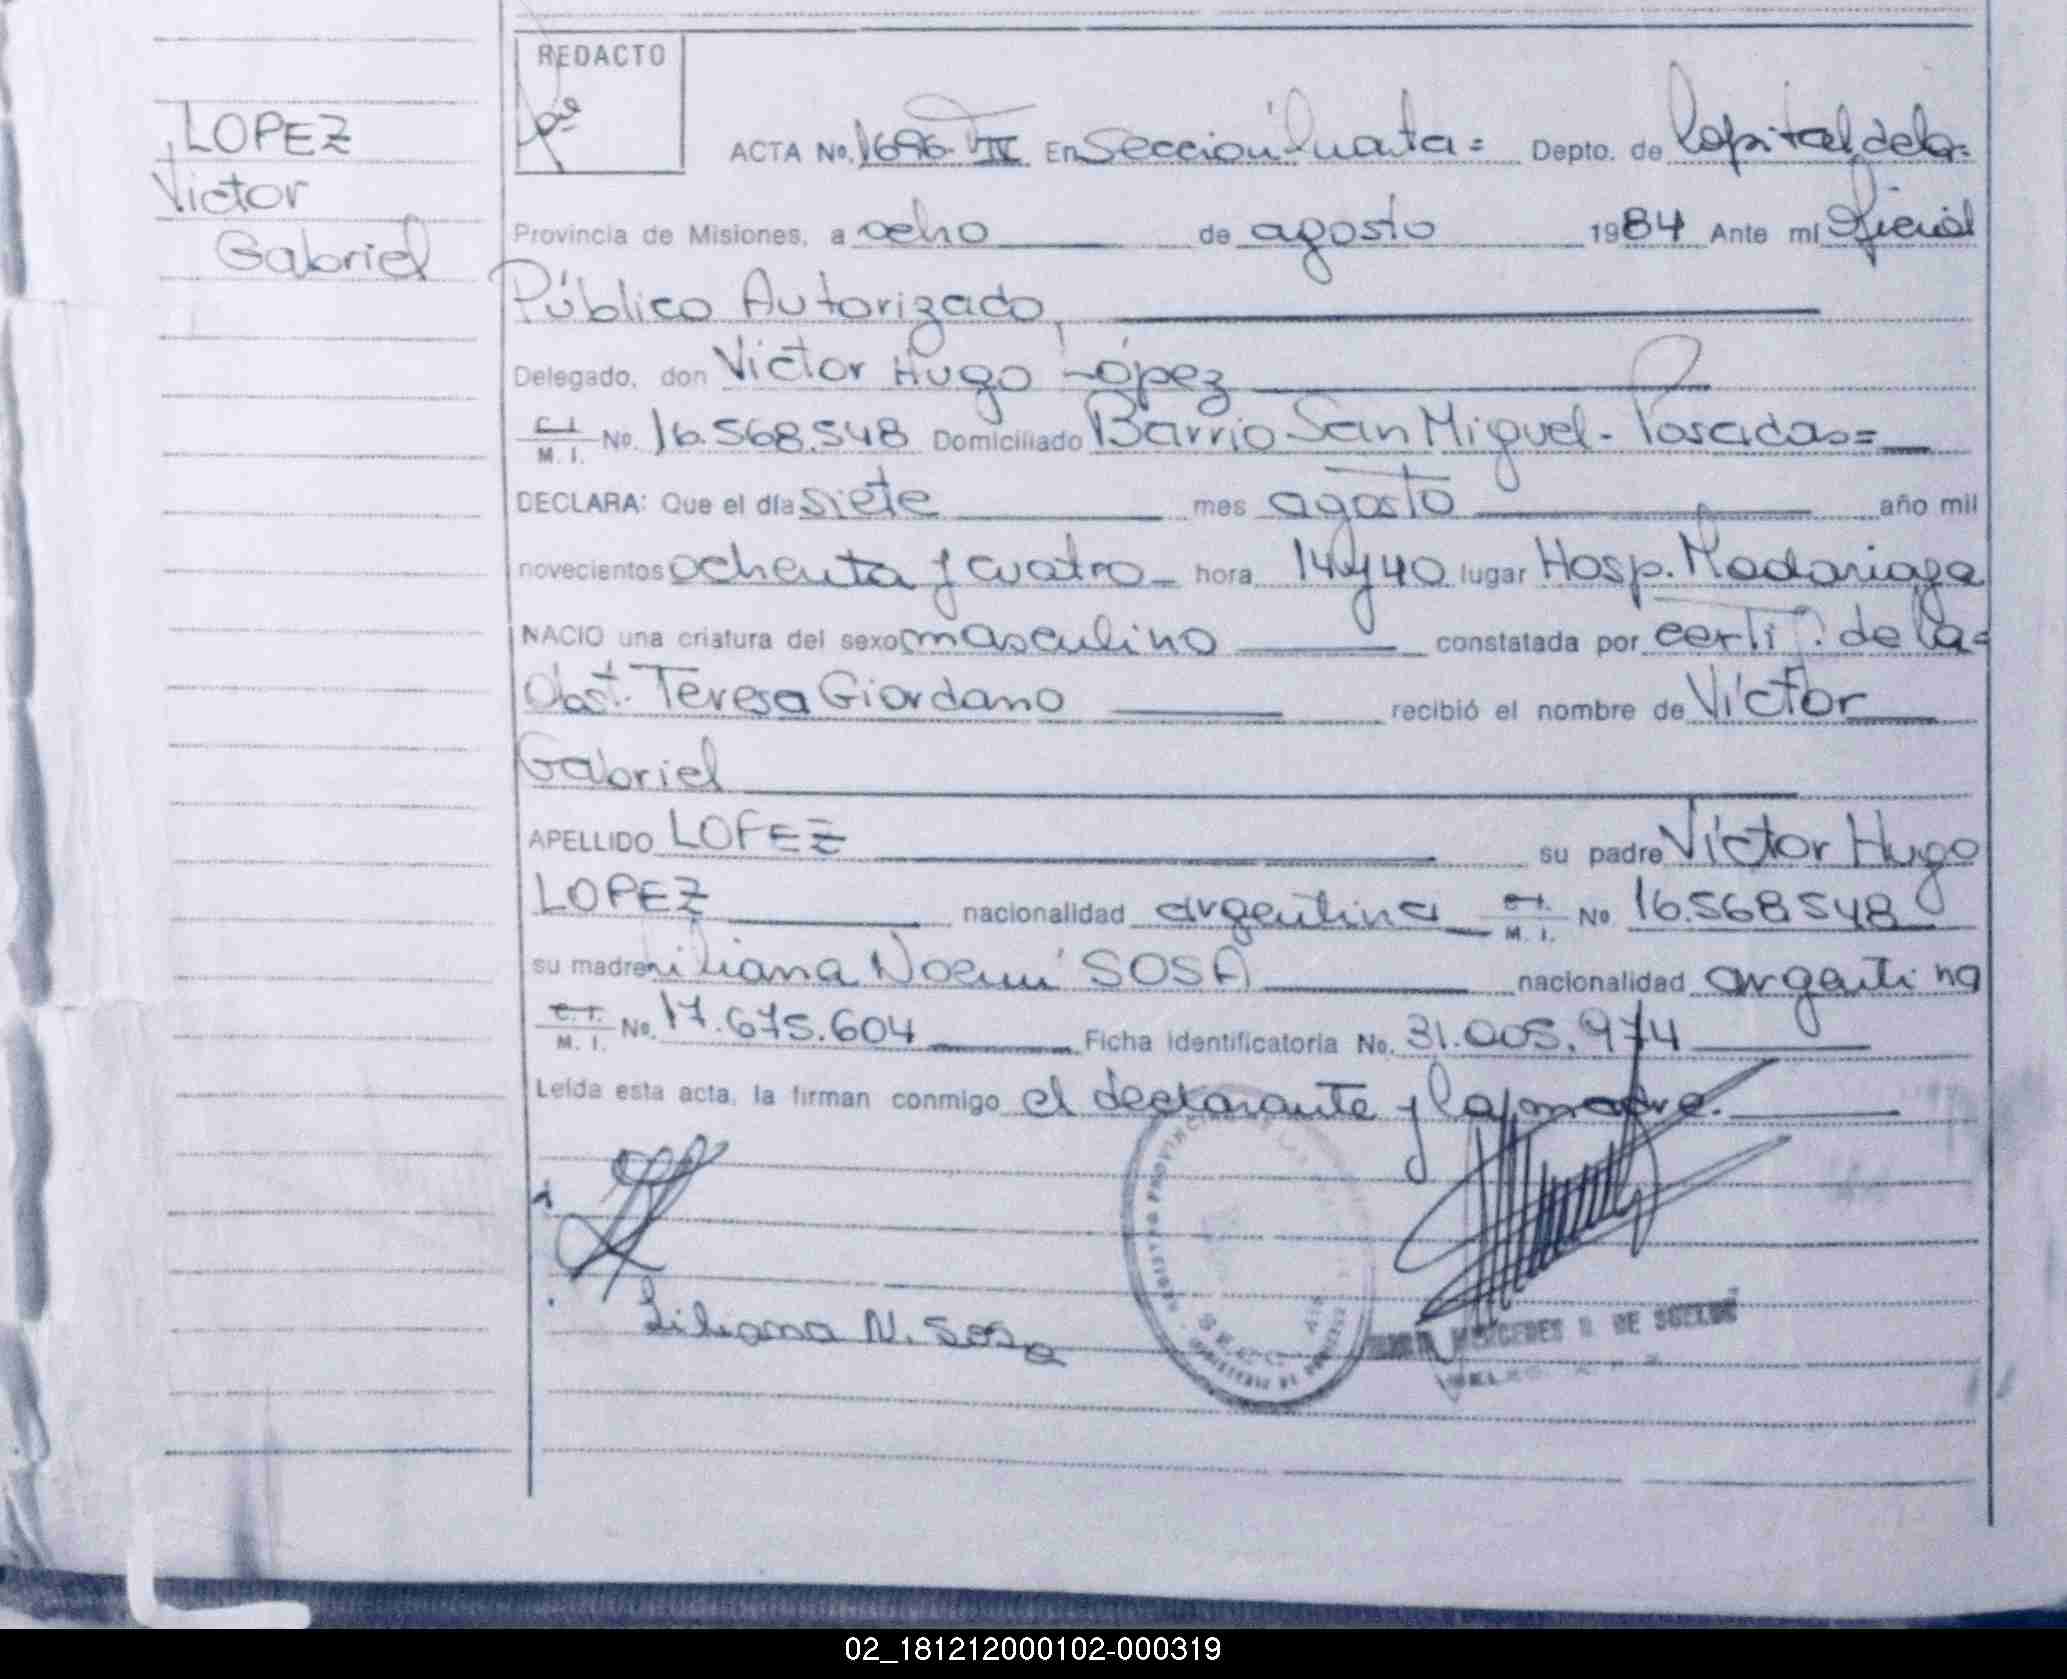 REDACTO
LOPEZ
Victor
Gabriel
ACTA No. 1696-TIV En Sección Cuarta= Depto. de Capital de la=
Provincia de Misiones, a ocho de agosto 1984 Ante mí Oficial
Público Autorizado,
Delegado, don Victor Hugo López
C.I. M. I. No. 16.568.548 Domiciliado Barrio San Miguel - Posadas=
DECLARA: Que el día siete mes agosto año mil
novecientos ochenta y cuatro hora 14 y 40 lugar Hosp. Madariaga
NACIO una criatura del sexo masculino constatada por certif. de la=
Obst. Teresa Giordano recibió el nombre de Victor
Gabriel
APELLIDO LOPEZ su padre Victor Hugo
LOPEZ nacionalidad argentina C.I. M. I. No 16.568.548
su madre Liliana Noemí SOSA nacionalidad argentina
C.I. M. I. No. 17.675.604 Ficha identificatoria No. 31.005.974
Leída esta acta, la firman conmigo el declarante y la madre.
Liliana N. Sosa
REGISTRO PROVINCIAL DE LAS
MERCEDES DE
02_181212000102-000319